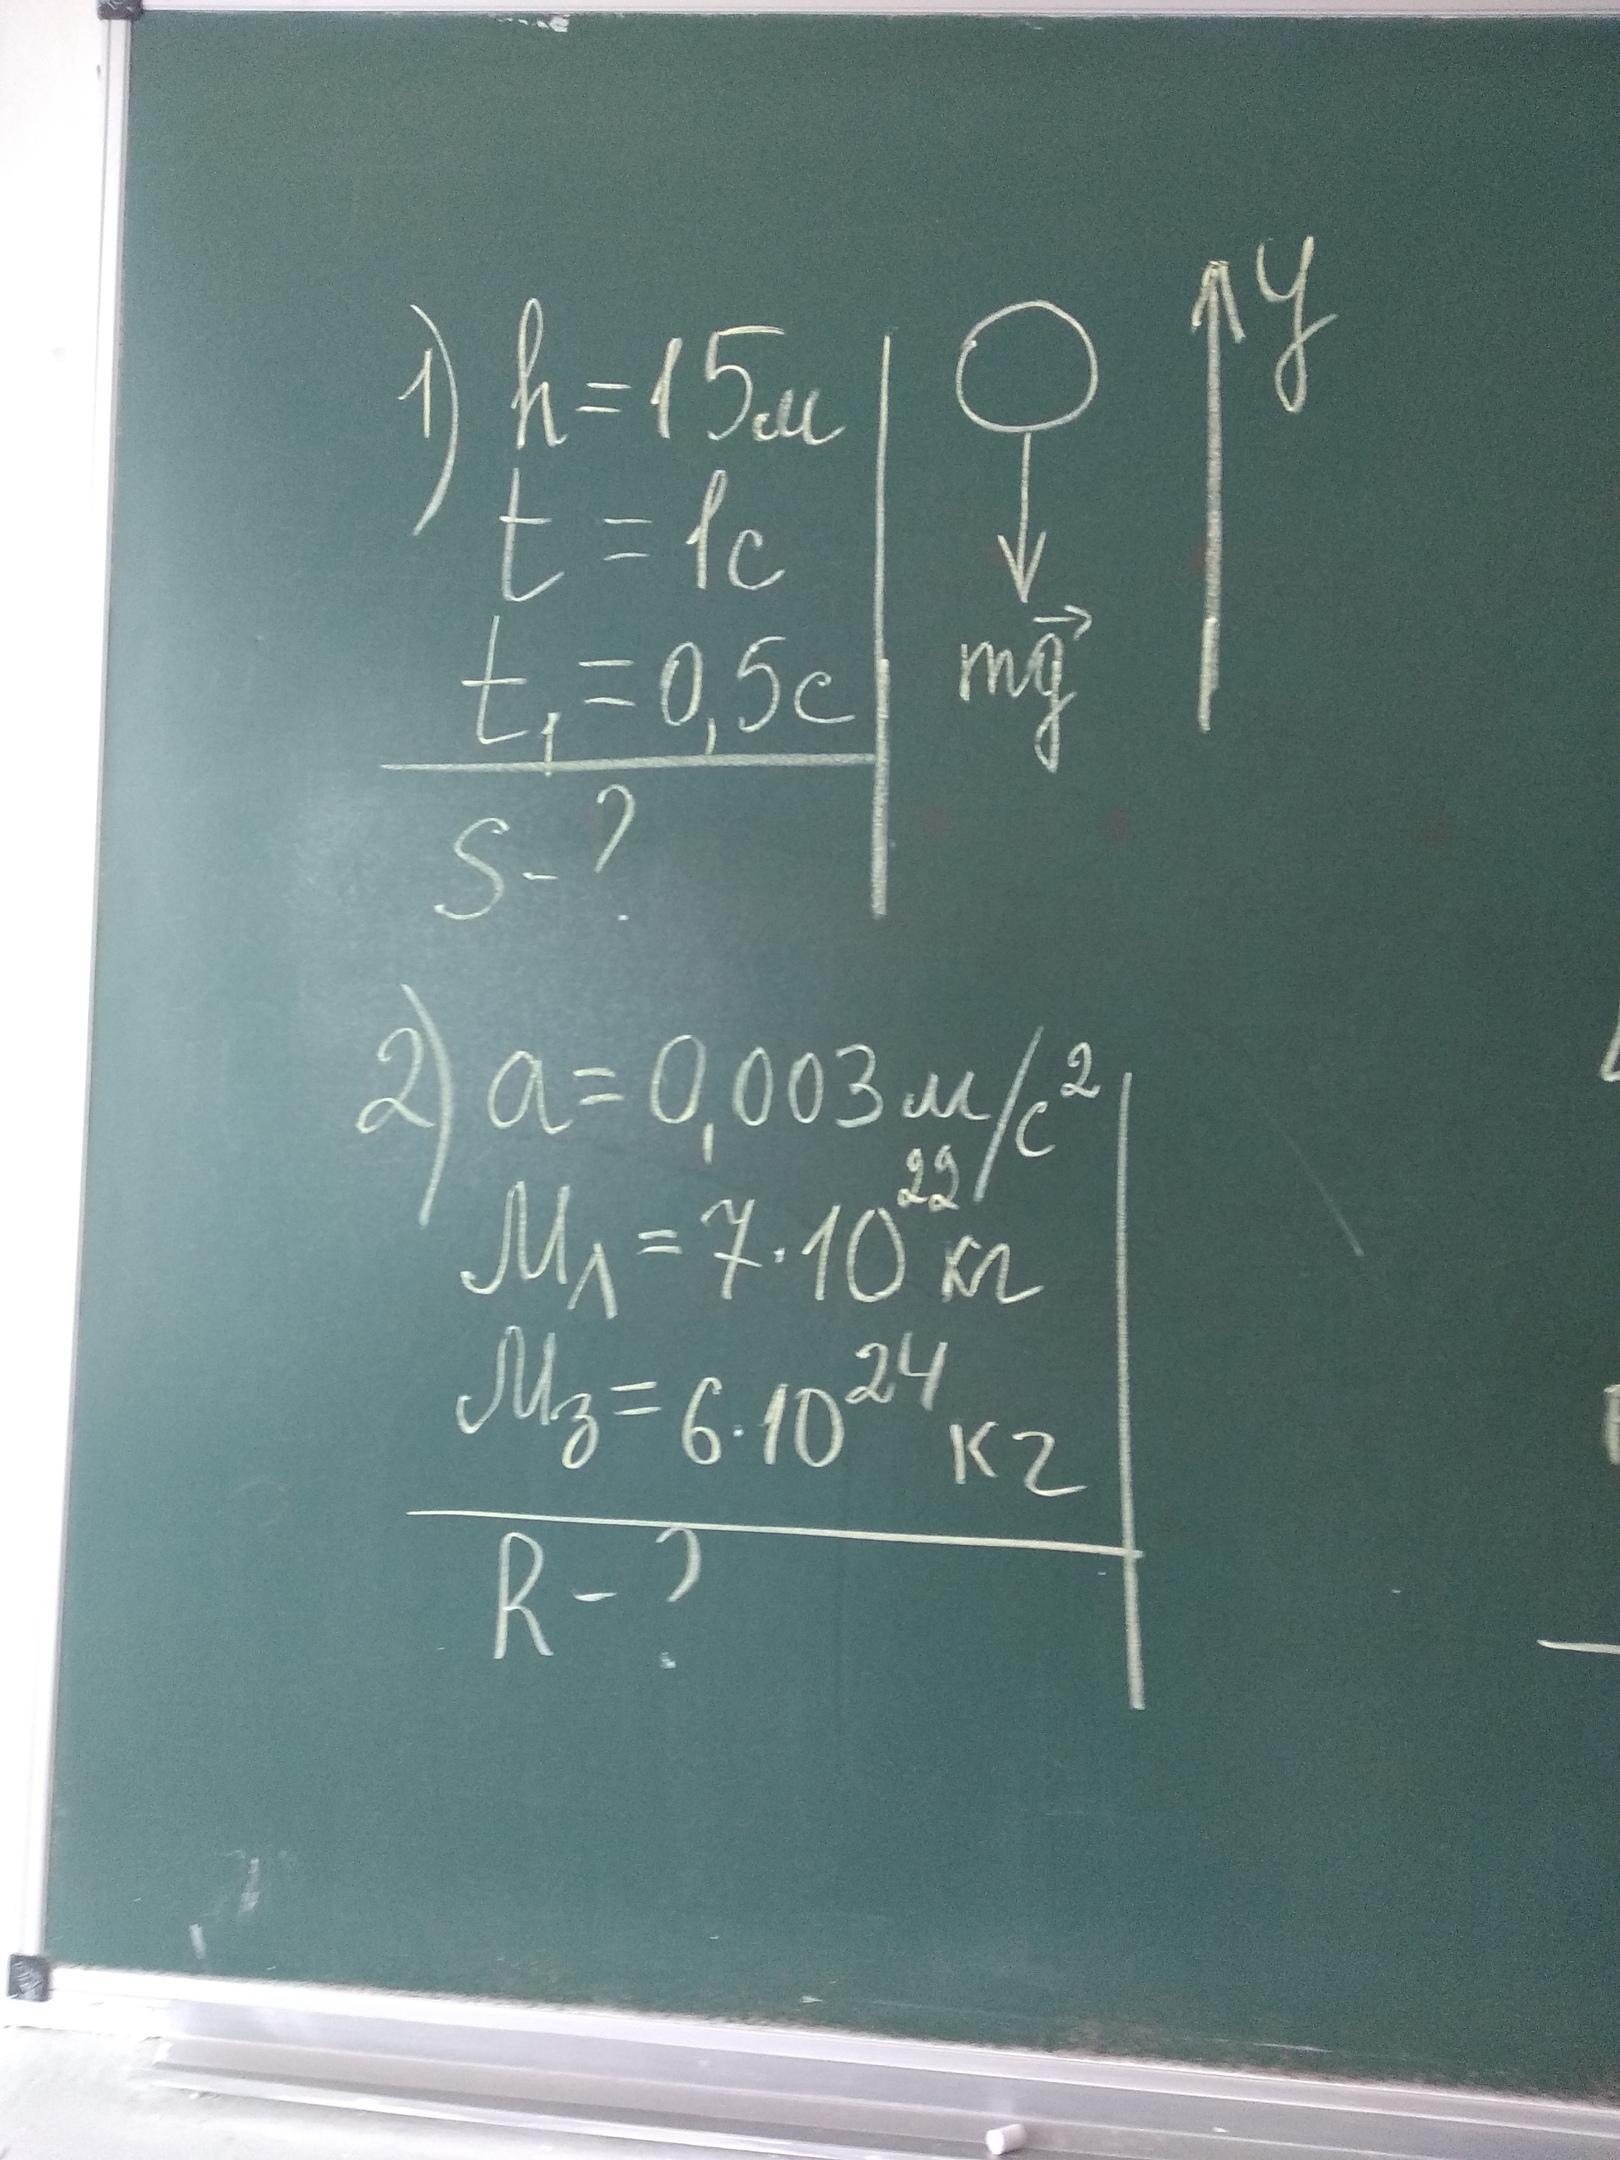 1) h = 15м
t = 1с
t₁ = 0,5с
S - ?
y
mg⃗
2) a = 0,003 м/с²
Mл = 7·10²² кг
Mз = 6·10²⁴ кг
R - ?